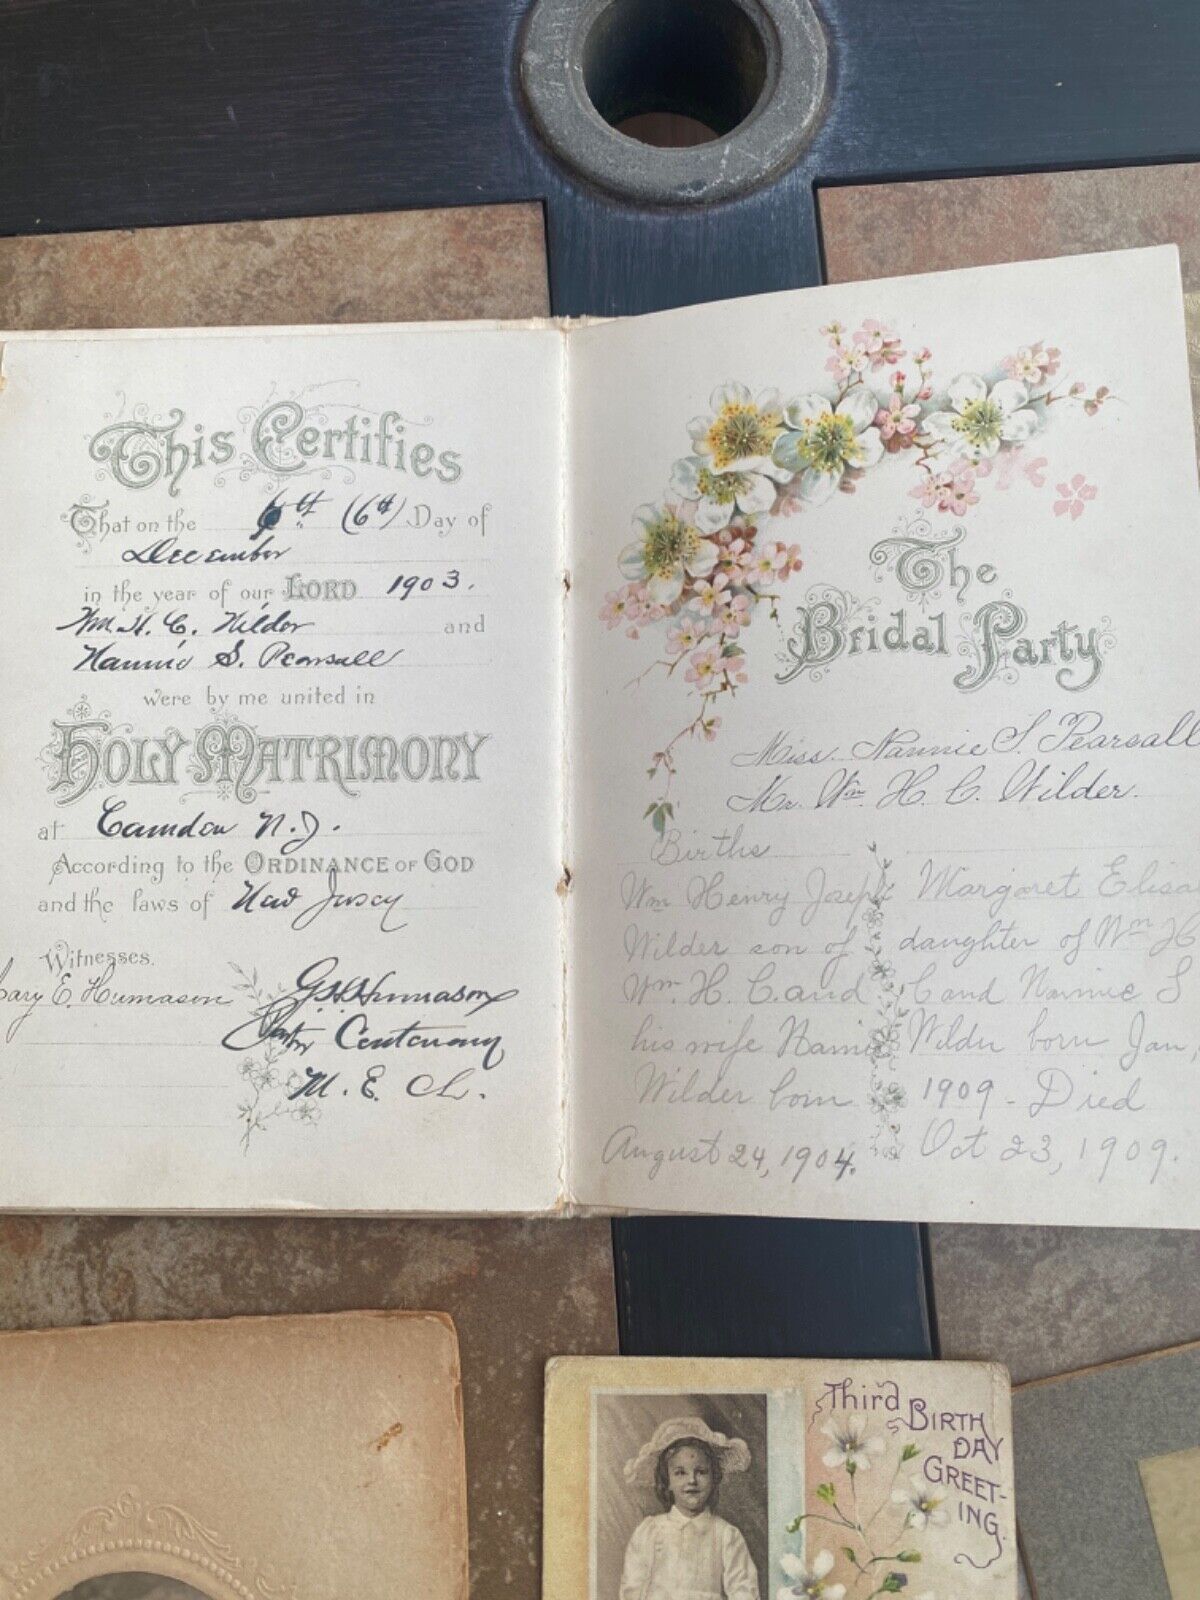 This Certifies
That on the 6th (6th) Day of
December
in the year of our LORD 1903.
Wm H. C. Wilder and
Nannie S. Pearsall
were by me united in
HOLY MATRIMONY
at Camden N.J.
According to the ORDINANCE OF GOD
and the laws of New Jersey
Witnesses.
Mary E. Humason
G. H. Humason
Pastor Centenary
M. E. Ch.
The
Bridal Party
Miss. Nannie S. Pearsall
Mr. Wm H. C. Wilder.
Births
Wm Henry Joseph
Wilder son of
Wm. H. C. and
his wife Nannie
Wilder born
August 24, 1904.
Margaret Elisa
daughter of Wm H
C and Nannie S
Wilder born Jan,
1909 - Died
Oct 23, 1909.
Third
BIRTH
DAY
GREET-
ING.